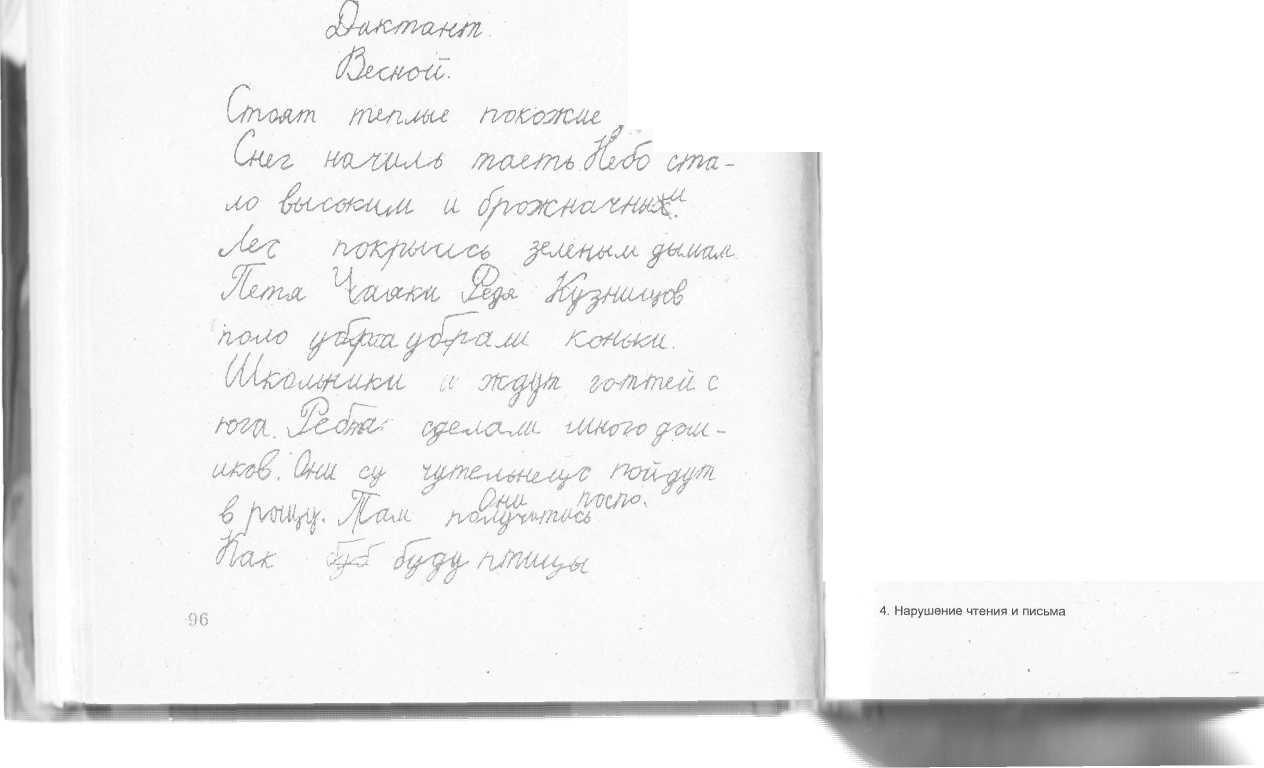 Диктант.
Весной.
Стоят теплые покожие
Снег начиль таеть. Небо ста-
ло высоким и брожначным.
Лес покрыись зеленым дымам.
Петя Чааки Федя Кузницов
поло убрта убрали коньки.
Школьники и ждут готтей с
юга. Ребта сделали много дом-
иков. Они су чутельнецс пойдут
в рыщу. Там получитись
Они поспо.
Как буб буду птицы
96
4. Нарушение чтения и письма